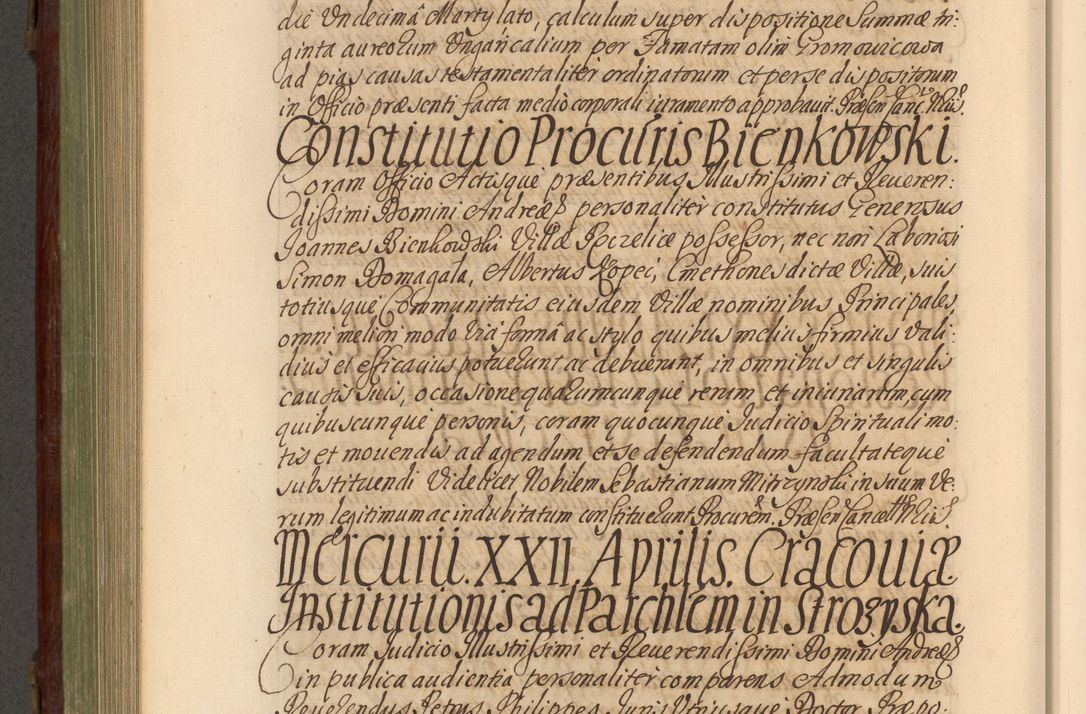 die Undecima Martÿ lato, calculum super dispositione Summæ tri:
ginta aureorum Ungaricalium per Famatam olim Gromowicowa
ad pias causas testamentaliter ordinatorum et per se dispositorum
in Officio præsenti facta medio corporali iuramento approbauit.
Constitutio Procuris Bienkowski.
Coram Officio Actisque præsentibus Illustrissimi et Reueren:
dissimi Domini Andreæ personaliter constitutus Generosus
Joannes Bienkowski Villæ Poczelice possessor, nec non Laboriosi
Simon Domagała, Albertus Kopeć, Cmethones dictæ Villæ, suis
totiusque Communitatis eiusdem Villæ nominibus Principales,
omni meliori modo via forma ac stylo quibus melius firmius vali:
dius et efficacius potuerunt ac debuerunt, in omnibus et singulis
causis suis, occasione quarumcunque rerum et iniuriarum, cum
quibuscunque personis, coram quocunque Judicio Spirituali mo:
tis et mouendis ad agendum et se defendendum facultateque
substituendi Videlicet Nobilem Sebastianum Mitrzynski in suum Ve:
rum legitimum ac indubitatum constituerunt Procurem.
Mercurii. XXII. Aprilis. Cracouiæ.
Institutionis ad Parchlem in Strozyska.
Coram Judicio Illustrissimi et Reuerendissimi Domini Andreæ
in publica audientia personaliter comparens Admodum
Reuerendus Petrus Philippes Juris Utriusque Doctor Præpo: